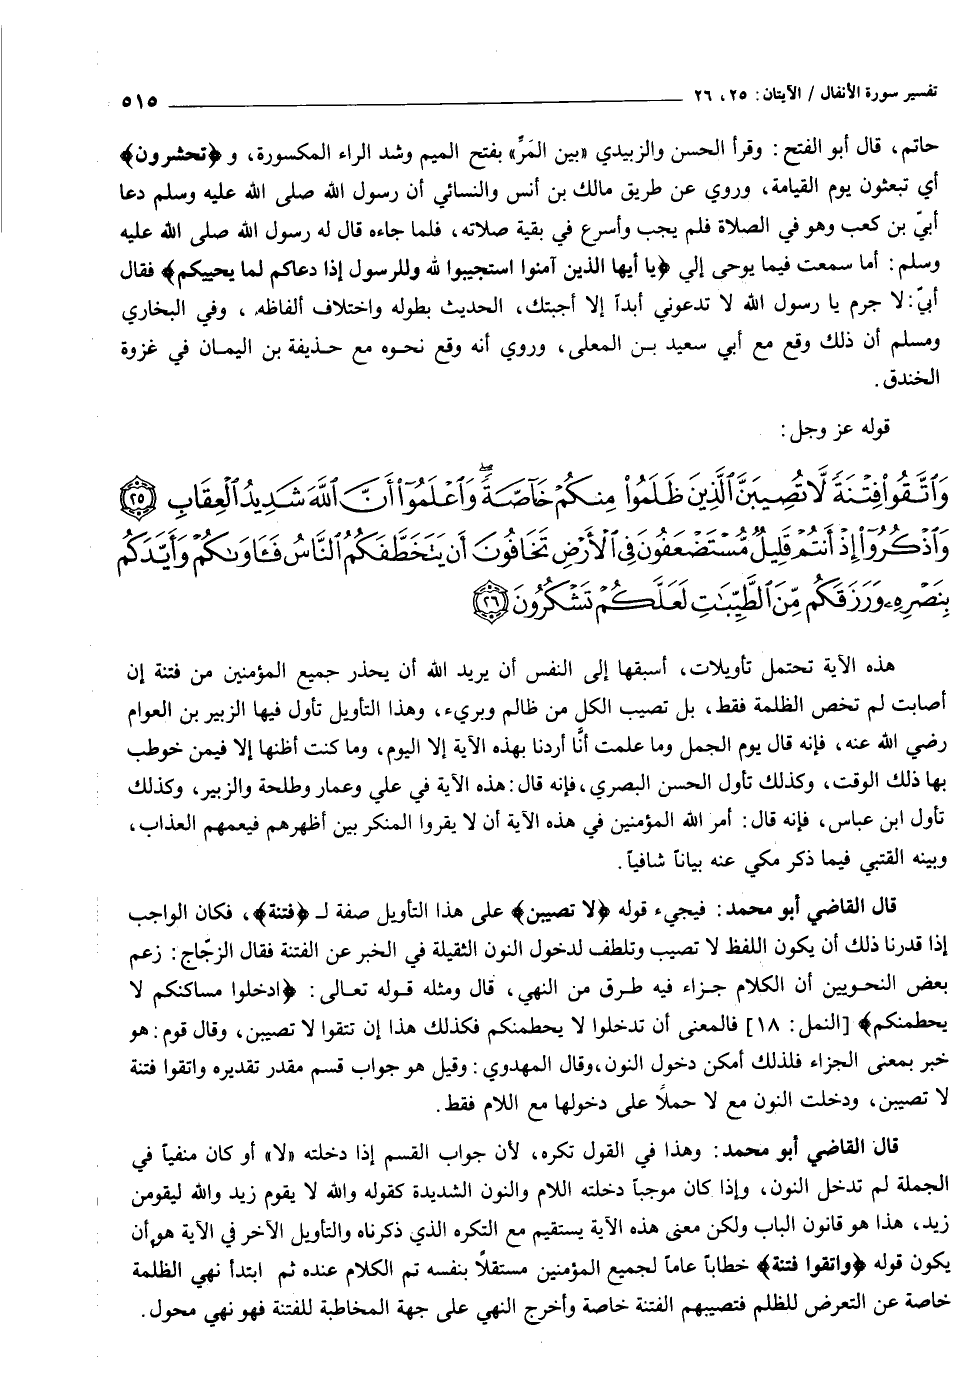 تفسير سورة الأنفال / الآيتان: ٢٥، ٢٦ ٥١٥
حاتم، قال أبو الفتح: وقرأ الحسن والزبيدي «بين المَرِّ» بفتح الميم وشد الراء المكسورة، و ﴿تحشرون﴾
أي تبعثون يوم القيامة، وروي عن طريق مالك بن أنس والنسائي أن رسول الله صلى الله عليه وسلم دعا
أبيّ بن كعب وهو في الصلاة فلم يجب وأسرع في بقية صلاته، فلما جاءه قال له رسول الله صلى الله عليه
وسلم: أما سمعت فيما يوحى إلي ﴿يا أيها الذين آمنوا استجيبوا لله وللرسول إذا دعاكم لما يحييكم﴾ فقال
أبيّ: لا جرم يا رسول الله لا تدعوني أبداً إلا أجبتك، الحديث بطوله واختلاف ألفاظه، وفي البخاري
ومسلم أن ذلك وقع مع أبي سعيد بن المعلى، وروي أنه وقع نحوه مع حذيفة بن اليمان في غزوة
الخندق.
قوله عز وجل:
وَٱتَّقُوا۟ فِتْنَةً لَّا تُصِيبَنَّ ٱلَّذِينَ ظَلَمُوا۟ مِنكُمْ خَآصَّةً ۖ وَٱعْلَمُوٓا۟ أَنَّ ٱللَّهَ شَدِيدُ ٱلْعِقَابِ ٢٥
وَٱذْكُرُوٓا۟ إِذْ أَنتُمْ قَلِيلٌ مُّسْتَضْعَفُونَ فِى ٱلْأَرْضِ تَخَافُونَ أَن يَتَخَطَّفَكُمُ ٱلنَّاسُ فَـَٔاوَىٰكُمْ وَأَيَّدَكُم
بِنَصْرِهِۦ وَرَزَقَكُم مِّنَ ٱلطَّيِّبَـٰتِ لَعَلَّكُمْ تَشْكُرُونَ ٢٦
هذه الآية تحتمل تأويلات، أسبقها إلى النفس أن يريد الله أن يحذر جميع المؤمنين من فتنة إن
أصابت لم تخص الظلمة فقط، بل تصيب الكل من ظالم وبريء، وهذا التأويل تأول فيها الزبير بن العوام
رضي الله عنه، فإنه قال يوم الجمل وما علمت أنَّا أردنا بهذه الآية إلا اليوم، وما كنت أظنها إلا فيمن خوطب
بها ذلك الوقت، وكذلك تأول الحسن البصري، فإنه قال: هذه الآية في علي وعمار وطلحة والزبير، وكذلك
تأول ابن عباس، فإنه قال: أمر الله المؤمنين في هذه الآية أن لا يقروا المنكر بين أظهرهم فيعمهم العذاب،
وبينه القتبي فيما ذكر مكي عنه بياناً شافياً.
قال القاضي أبو محمد: فيجيء قوله ﴿لا تصيبن﴾ على هذا التأويل صفة لـ ﴿فتنة﴾، فكان الواجب
إذا قدرنا ذلك أن يكون اللفظ لا تصيب وتلطف لدخول النون الثقيلة في الخبر عن الفتنة فقال الزجّاج: زعم
بعض النحويين أن الكلام جزاء فيه طرق من النهي، قال ومثله قوله تعالى: ﴿ادخلوا مساكنكم لا
يحطمنكم﴾ [النمل: ١٨] فالمعنى أن تدخلوا لا يحطمنكم فكذلك هذا إن تتقوا لا تصيبن، وقال قوم: هو
خبر بمعنى الجزاء فلذلك أمكن دخول النون، وقال المهدوي: وقيل هو جواب قسم مقدر تقديره واتقوا فتنة
لا تصيبن، ودخلت النون مع لا حملًا على دخولها مع اللام فقط.
قال القاضي أبو محمد: وهذا في القول تكره، لأن جواب القسم إذا دخلته «لا» أو كان منفياً في
الجملة لم تدخل النون، وإذا كان موجباً دخلته اللام والنون الشديدة كقوله والله لا يقوم زيد والله ليقومن
زيد، هذا هو قانون الباب ولكن معنى هذه الآية يستقيم مع التكره الذي ذكرناه والتأويل الآخر في الآية هو أن
يكون قوله ﴿واتقوا فتنة﴾ خطاباً عاماً لجميع المؤمنين مستقلًا بنفسه تم الكلام عنده ثم ابتدأ نهي الظلمة
خاصة عن التعرض للظلم فتصيبهم الفتنة خاصة وأخرج النهي على جهة المخاطبة للفتنة فهو نهي محول.